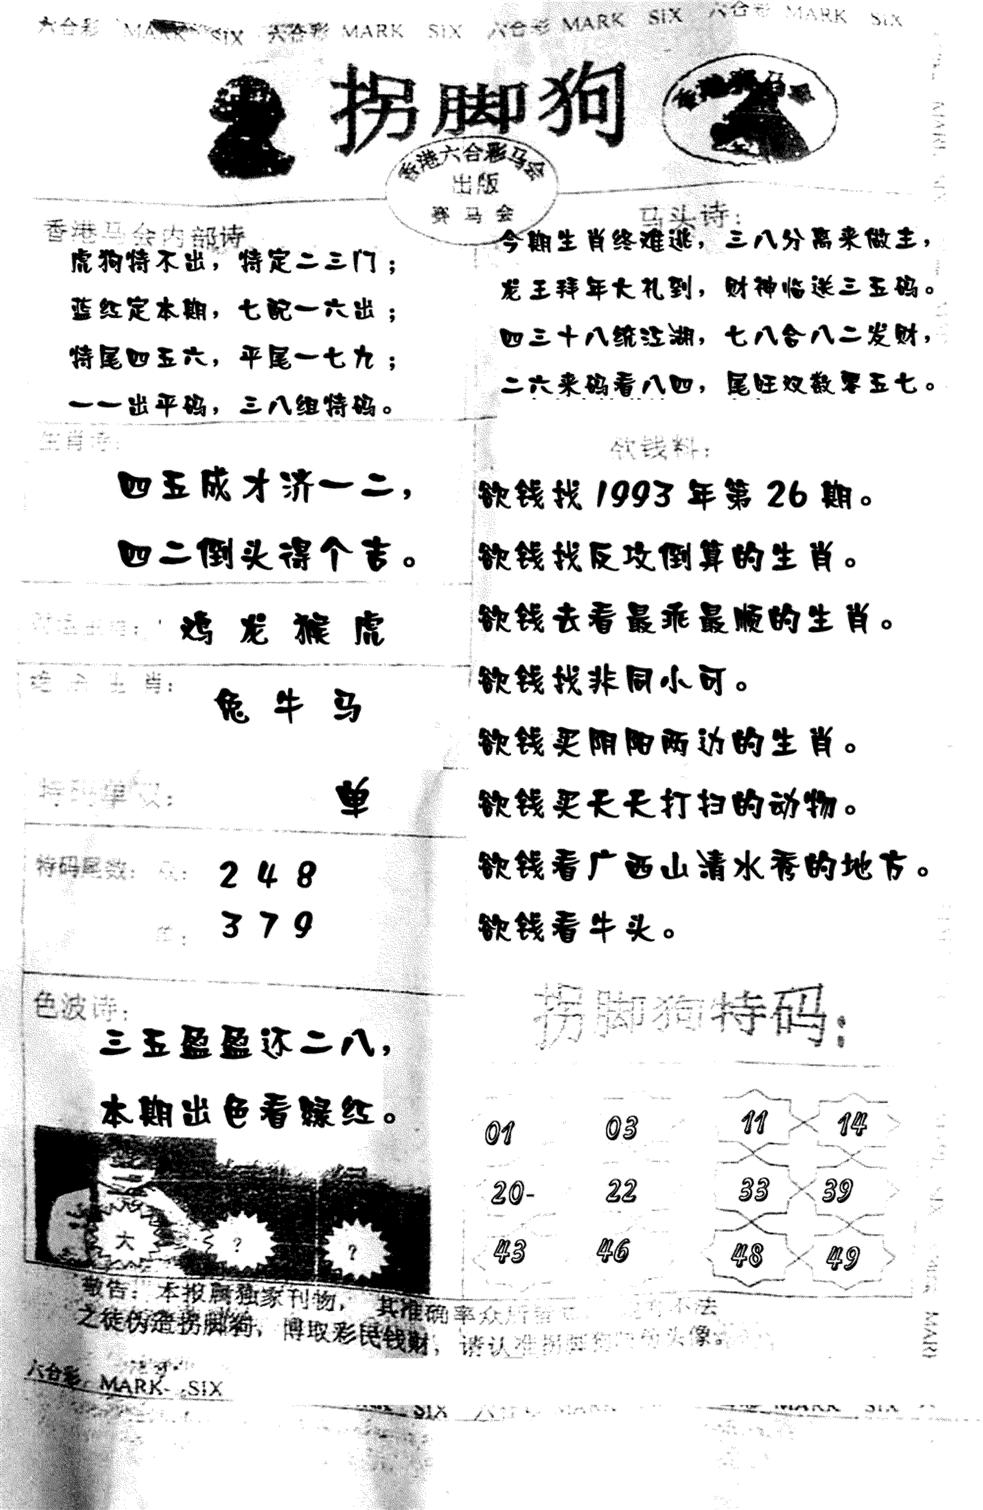 六合彩 MARK SIX 六合彩 MARK SIX 六合彩 MARK SIX 六合彩 MARK SIX
拐脚狗
香港赛马会
香港六合彩马会
出版
赛马会
香港马会内部诗
虎狗特不出，特定二三门；
蓝红定本期，七配一六出；
特尾四五六，平尾一七九；
一一出平码，三八组特码。
马头诗：
今期生肖终难逃，三八分离来做主，
龙王拜年大礼到，财神临送三五码。
四三十八统江湖，七八合八二发财，
二六来码看八四，尾旺双数零五七。
生肖诗：
四五成才济一二，
四二倒头得个吉。
鸡龙猴虎
生肖：
兔牛马
特码单双：
单
特码尾数：双：248
单：379
色波诗：
三五盈盈还二八，
本期出色看绿红。
大 ? ?
欲钱料：
欲钱找1993年第26期。
欲钱找反攻倒算的生肖。
欲钱去看最乖最顺的生肖。
欲钱找非同小可。
欲钱买阴阳两边的生肖。
欲钱买天天打扫的动物。
欲钱看广西山清水秀的地方。
欲钱看牛头。
拐脚狗特码：
01 03 11 14
20- 22 33 39
43 46 48 49
敬告：本报属独家刊物，其准确率众所 不法
之徒伪造拐脚狗，博取彩民钱财，请认准拐脚狗 头像。
六合彩 MARK SIX